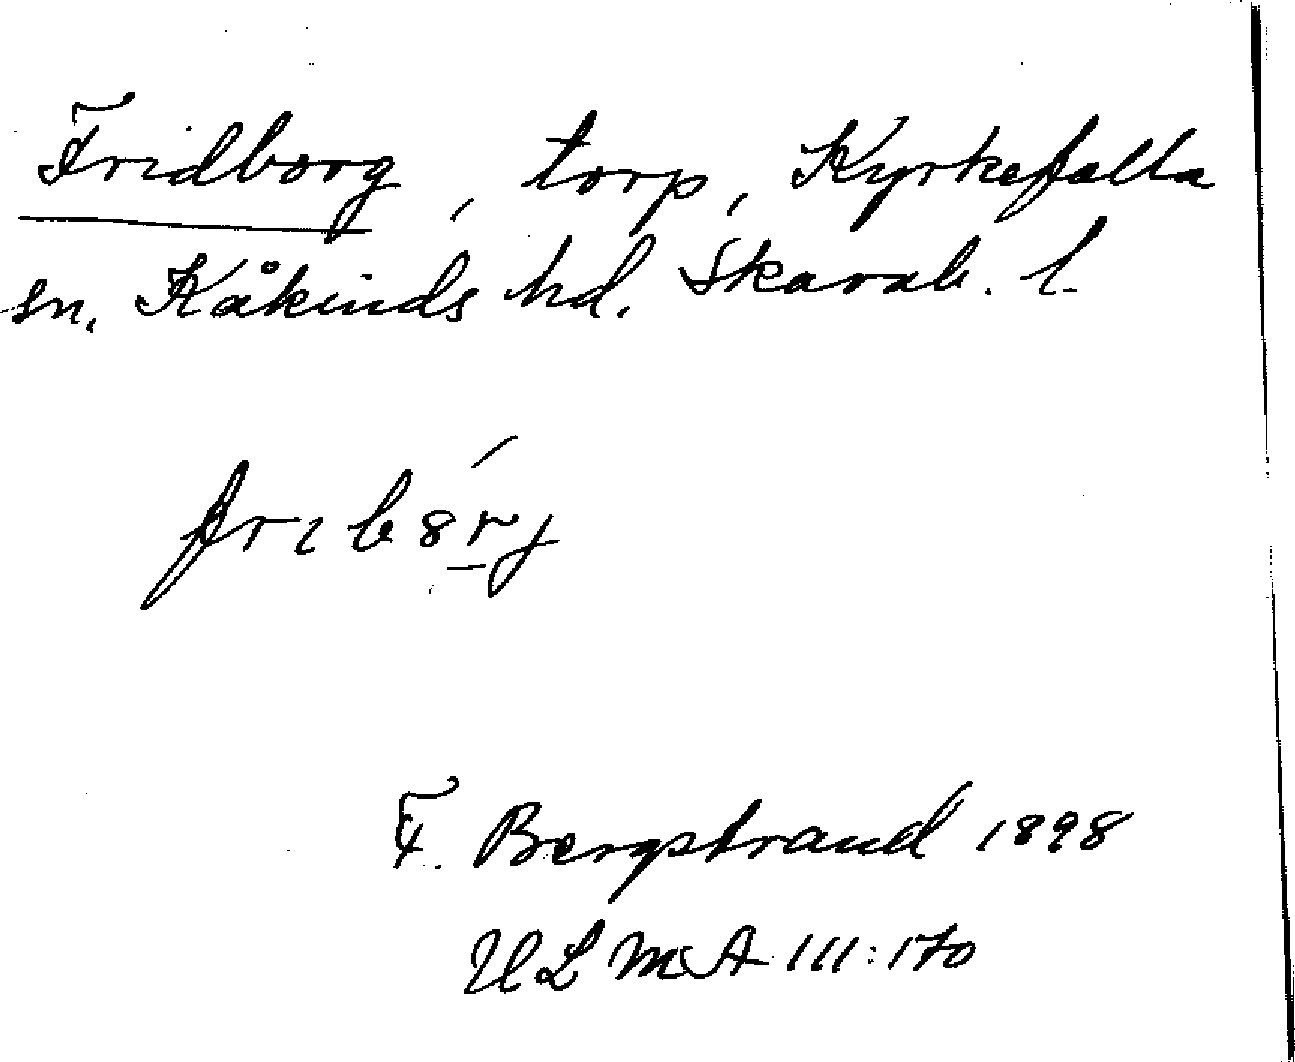 Fridborg, torp, Kyrkefalla
sn. Kåkinds hd. Skarab. l.
frib8rj
F. Bergstrand 1898
ULMA 111:170